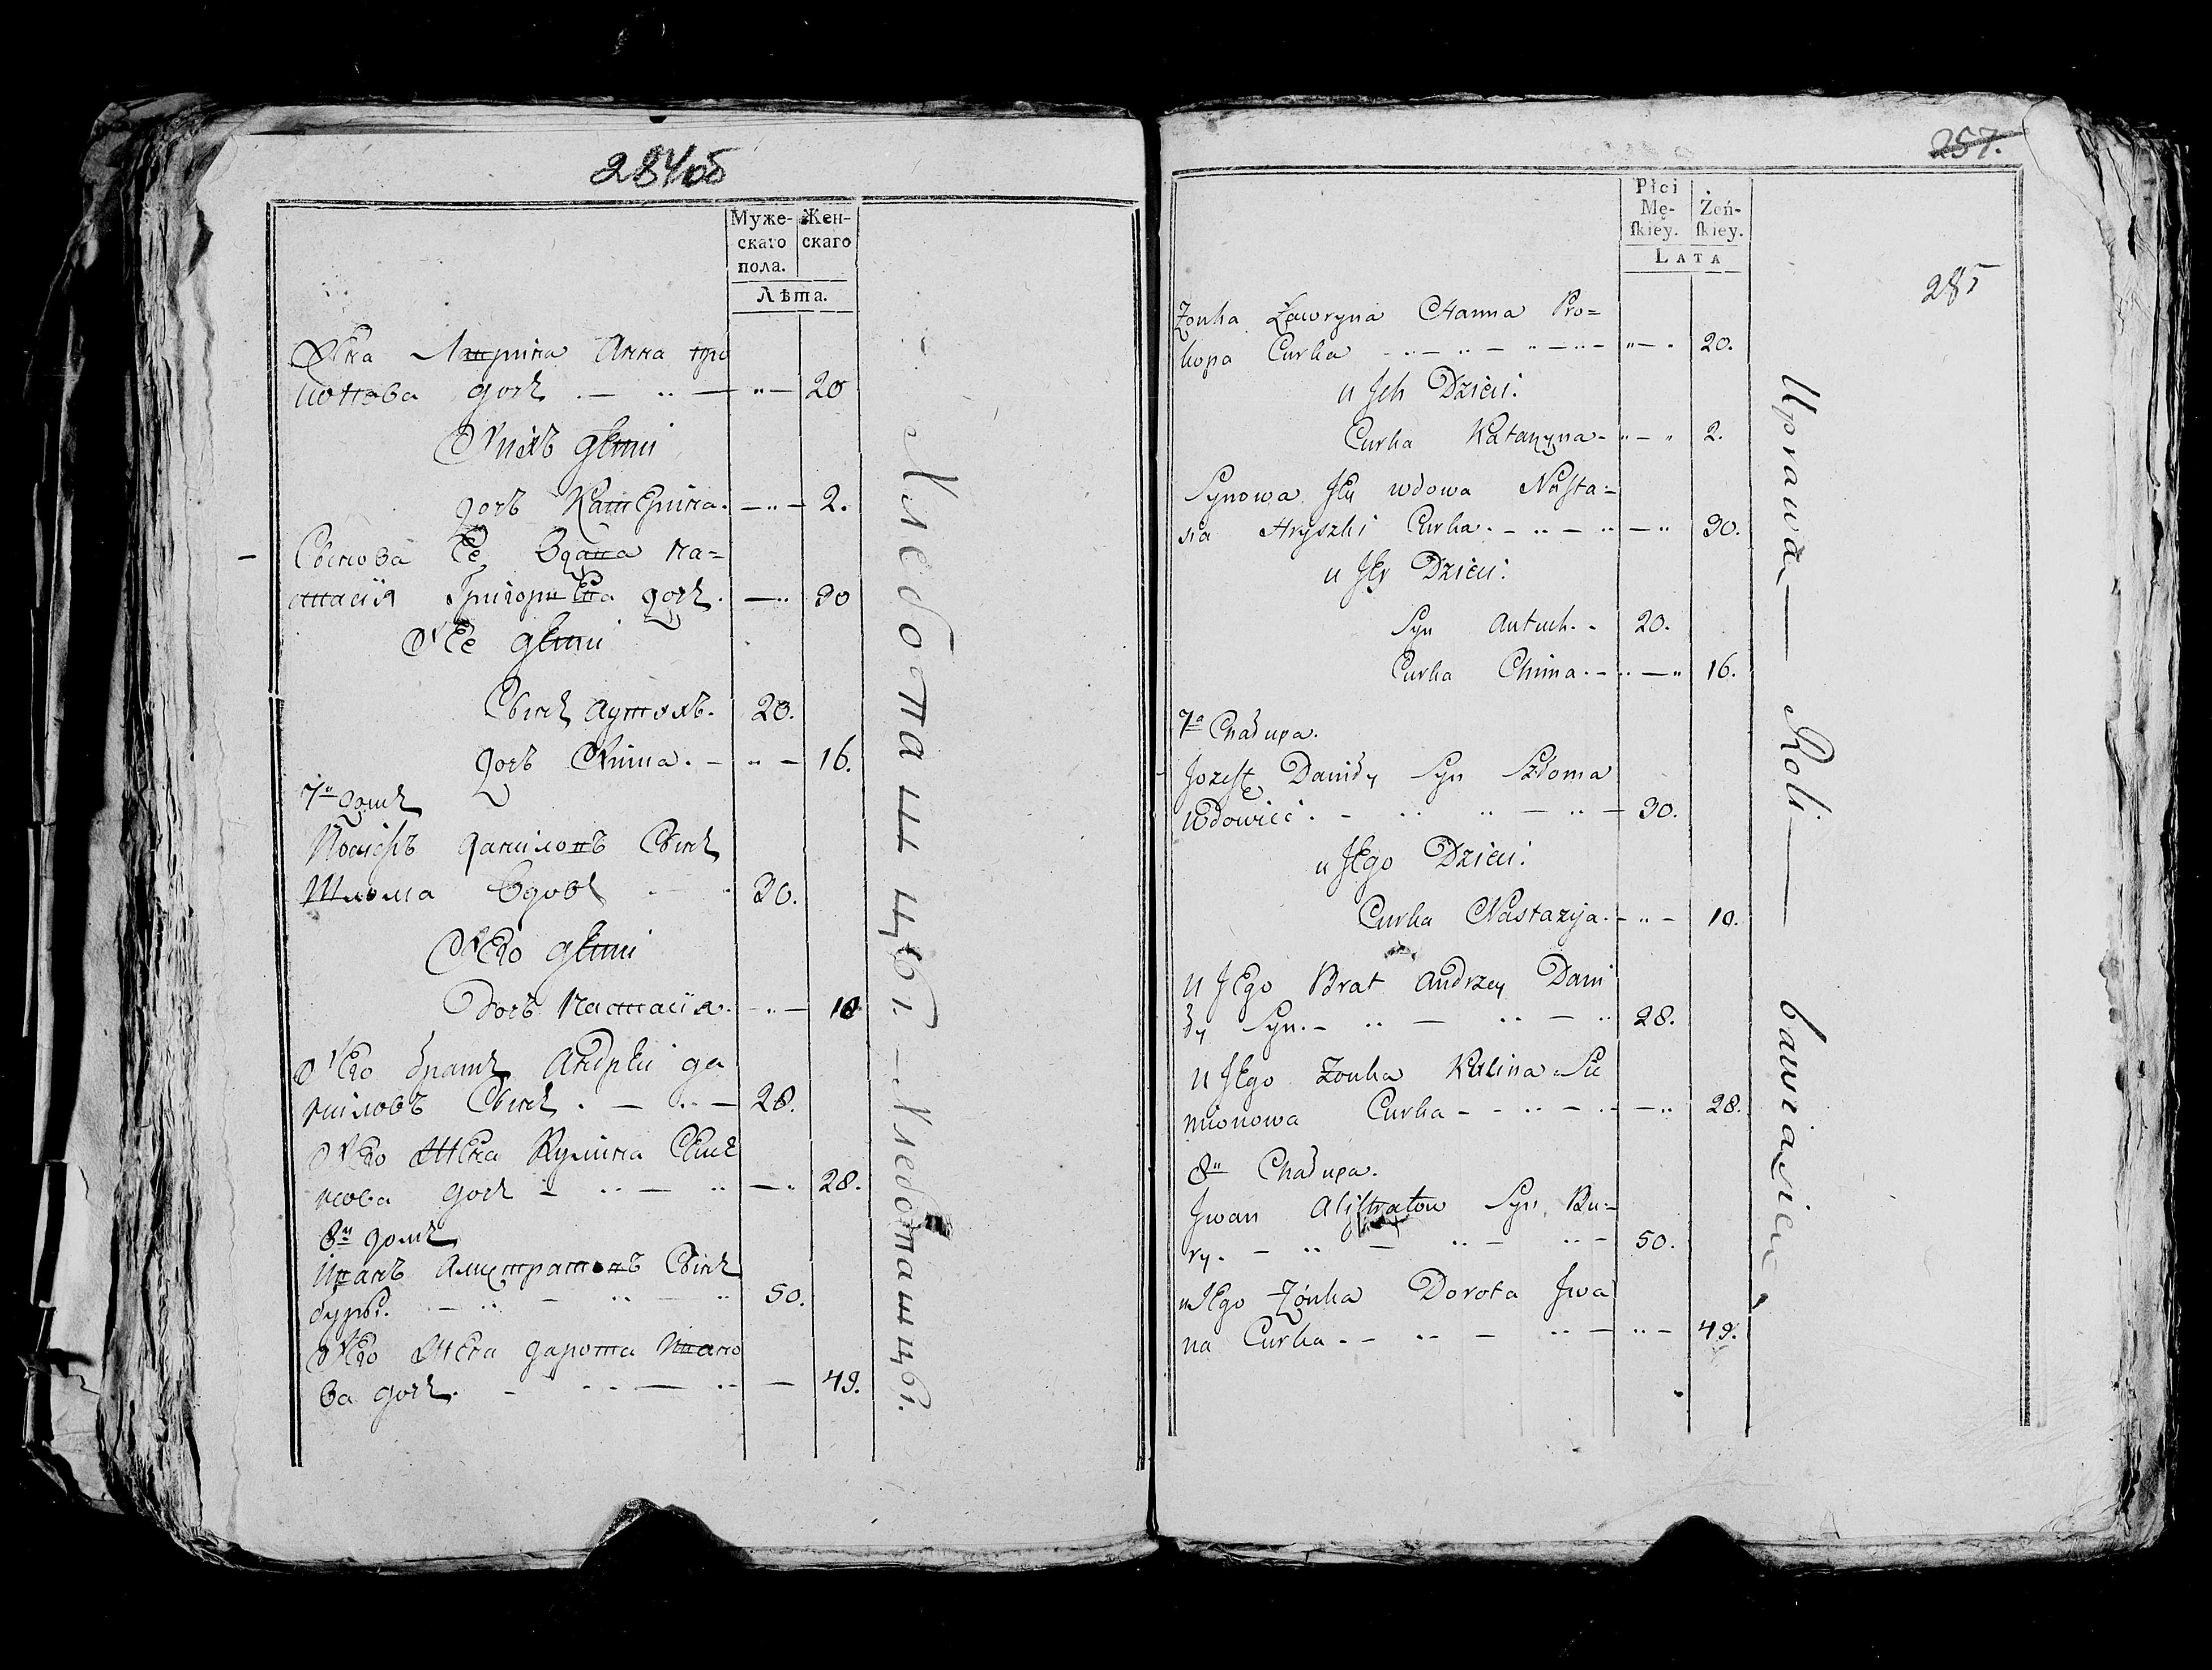 284об
Муже- Жен-
скаго скаго
пола.
Лѣта.
Жена Лавρина Анна про
копова дочь 20
У нихъ дѣти
дочь Катерина. 2.
Сынова Ее Вдова На=
стасія Григорьева дочь. 30
У Ее дѣти
Сынъ Аутухъ. 20.
дочь Хима. 16.
7й домъ
Іосифъ даниловъ Сынъ
Шлома Вдовъ 30.
У Его дѣти
Дочь Настасія. 10
У Его братъ Андрѣй да
ниловъ Сынъ. 28.
У Его Жена Кулина Семе
нова дочь 28.
8й домъ
Иванъ Алистратовъ Сынъ
буры. 50.
У Его Жена дарота Ивано
ва дочь. 49.
Хлебопашцы. — Хлебопашцы.
257.
Płci
Mę- Żeń-
ſkiey. ſkiey.
LATA
285
Zonka Ławryna Hanna Pro=
kopa Curka 20.
u Jch Dzieci:
Curka Katarzyna 2.
Synowa Jey wdowa Nasta=
sia Hryszki Curka. 30.
u Jey Dzieci:
Syn Antuch. 20.
Curka Chima. 16.
7a Chałupa.
Jozeff Daniły Syn Szłoma
Wdowiec. 30.
u Jego Dzieci:
Curka Nastazija. 10.
u Jego Brat Andrzey Dani
ły Syn. 28.
u Jego Zonka Kulina Sie
mionowa Curka 28.
8a Chałupa.
Jwan Alistratow Syn Bu=
ry. 50.
u Jego Zónka Dorota Jwa
na Curka. 49.
Uprawą — Roli — bawiąsie